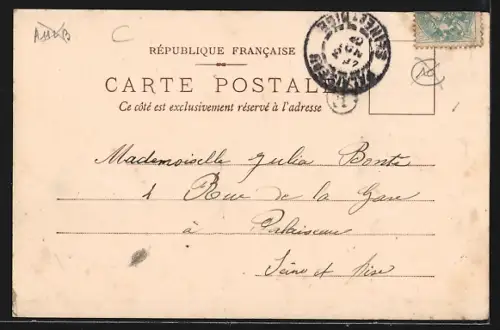 RÉPUBLIQUE FRANÇAISE
CARTE POSTALE
Ce côté est exclusivement réservé à l'adresse
Mademoiselle Julia Bonte
1 Rue de la Gare
à Palaiseau
Seine et Oise